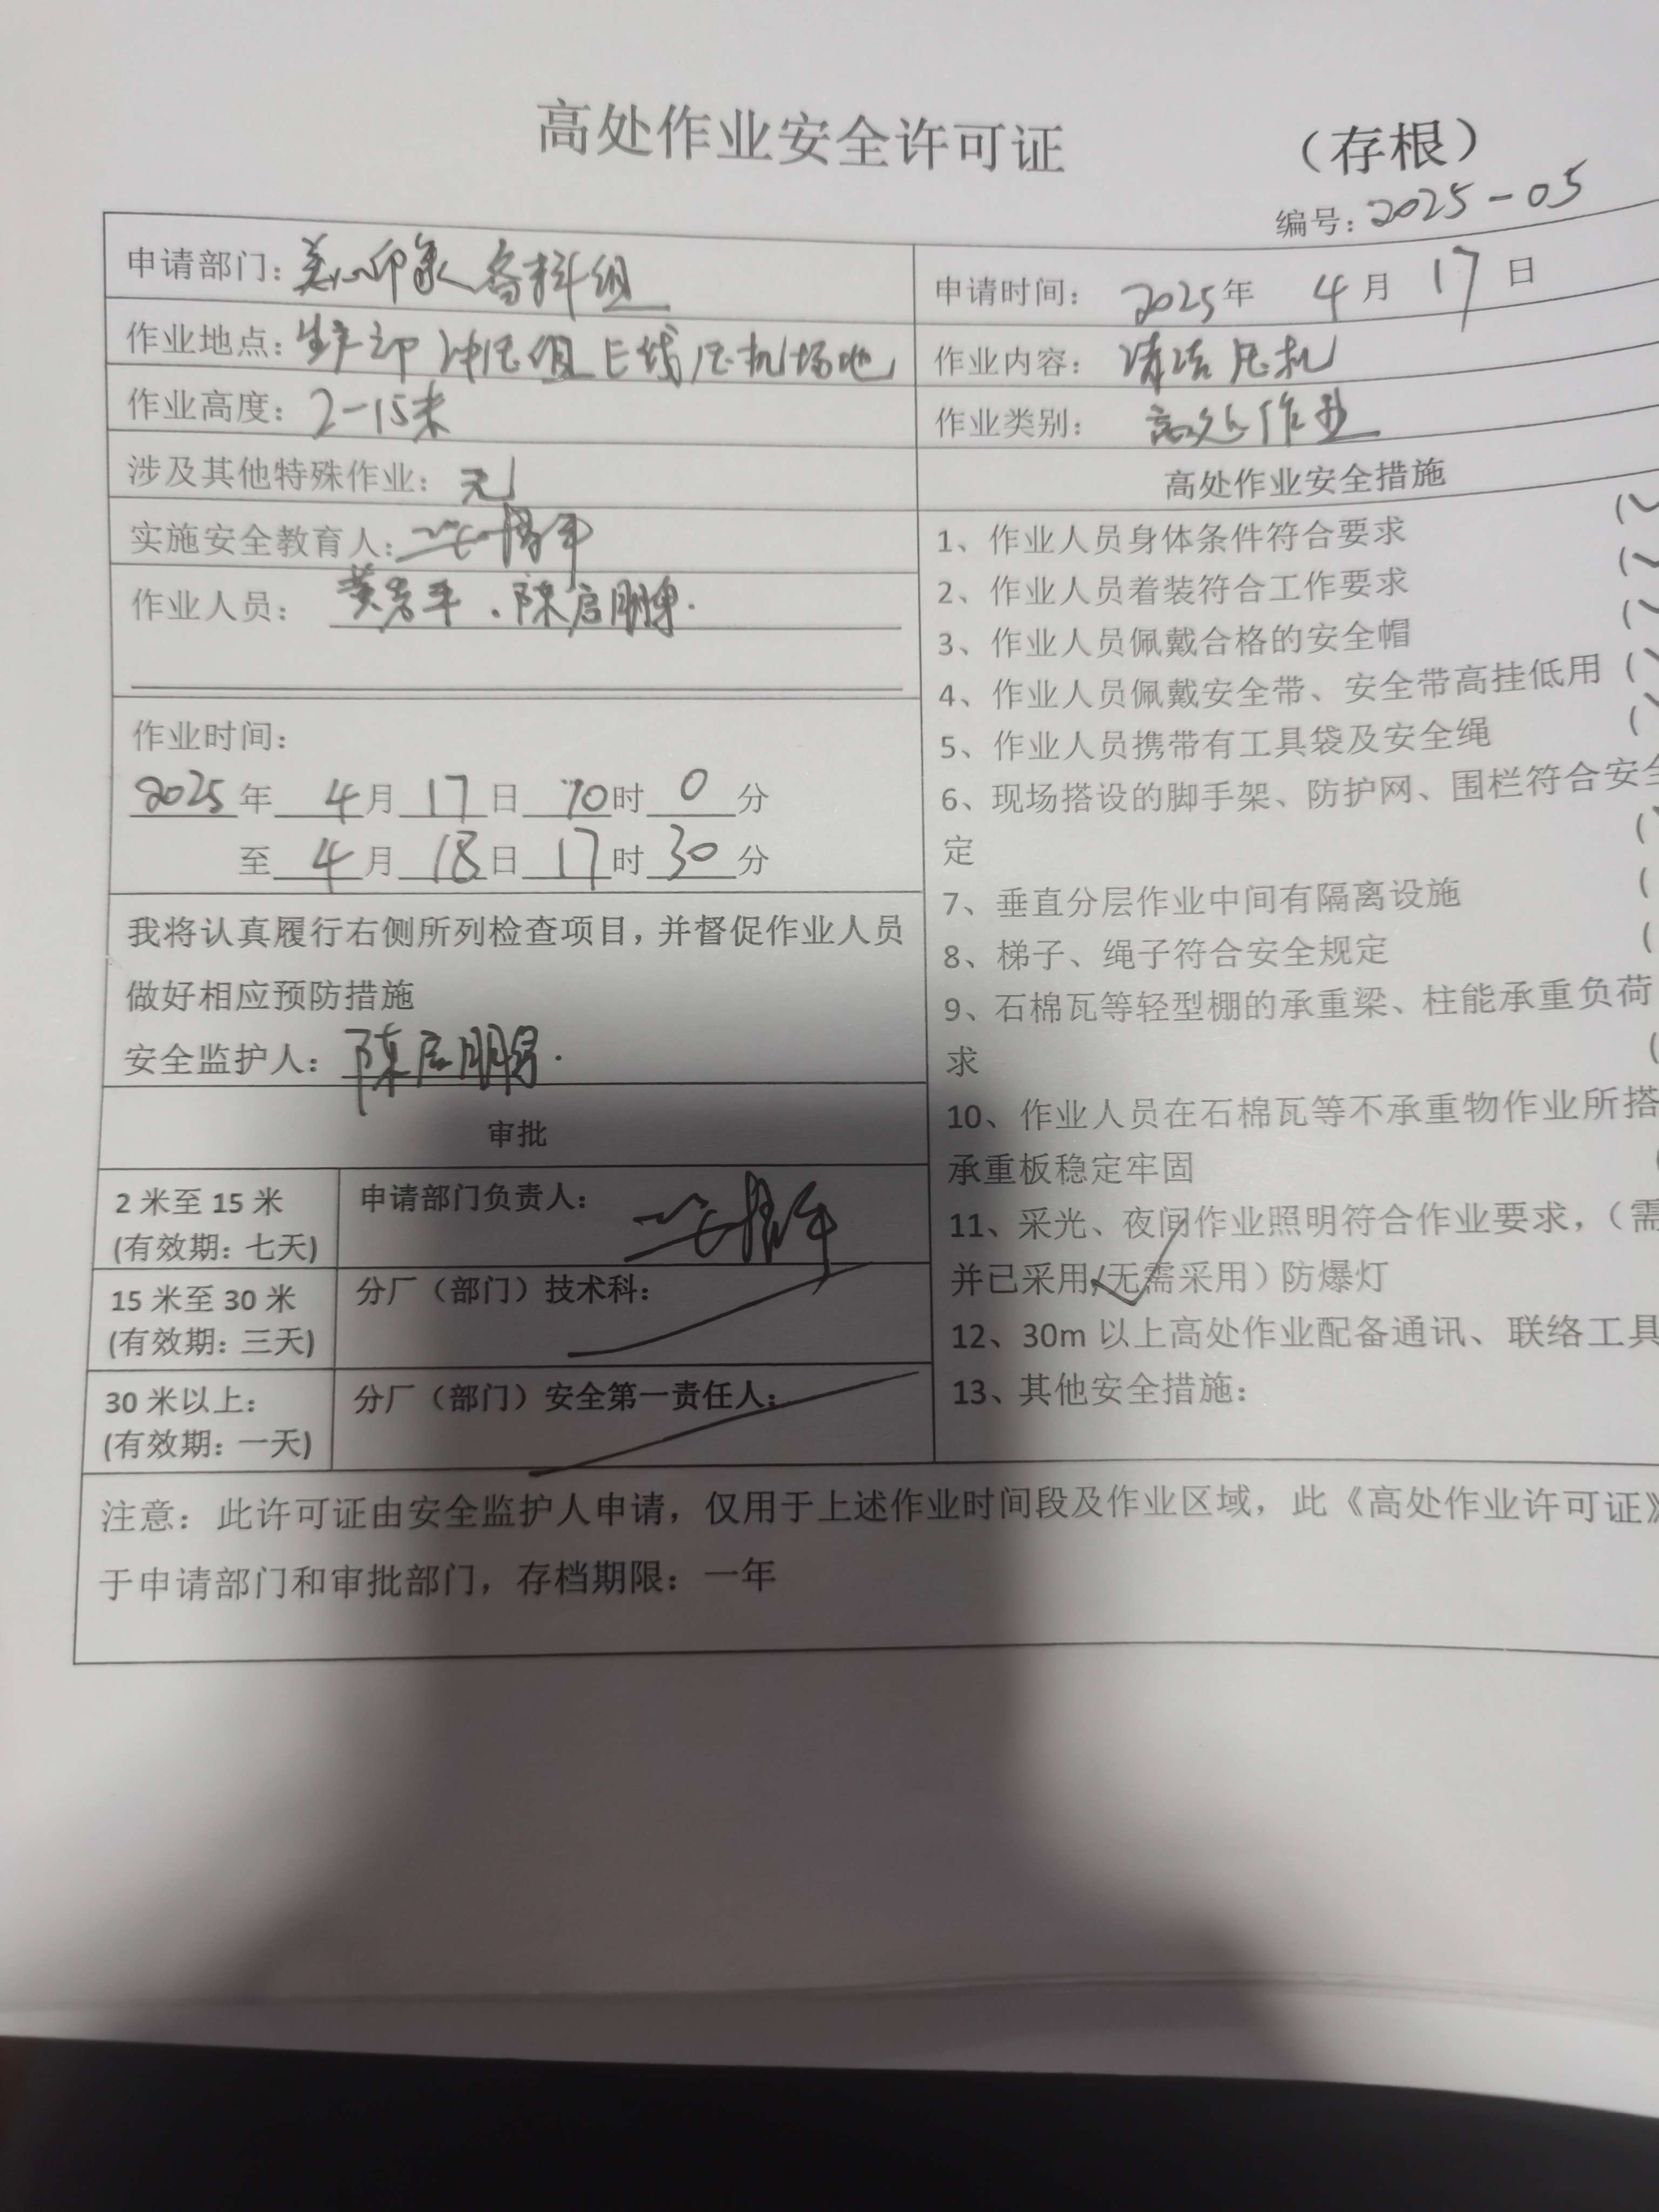 高处作业安全许可证 （存根）
编号：2025-05
申请部门：美心印象备料组
申请时间： 2025年 4月 17日
作业地点：生产部 冲压组E线压机场地
作业内容： 清洁压机
作业高度：2-15米
作业类别： 高处作业
涉及其他特殊作业：无
实施安全教育人：
作业人员： 黄 平、陈启鹏
作业时间：
2025年 4月 17日 10时 0分
至 4月 18日 17时 30分
我将认真履行右侧所列检查项目，并督促作业人员
做好相应预防措施
安全监护人：陈启鹏
审批
2 米至 15 米
(有效期：七天)
申请部门负责人：
15 米至 30 米
(有效期：三天)
分厂（部门）技术科：
30 米以上：
(有效期：一天)
分厂（部门）安全第一责任人：
高处作业安全措施
1、作业人员身体条件符合要求
2、作业人员着装符合工作要求
3、作业人员佩戴合格的安全帽
4、作业人员佩戴安全带、安全带高挂低用
5、作业人员携带有工具袋及安全绳
6、现场搭设的脚手架、防护网、围栏符合安全
定
7、垂直分层作业中间有隔离设施
8、梯子、绳子符合安全规定
9、石棉瓦等轻型棚的承重梁、柱能承重负荷
求
10、作业人员在石棉瓦等不承重物作业所搭
承重板稳定牢固
11、采光、夜间作业照明符合作业要求，（需
并已采用/无需采用）防爆灯
12、30m 以上高处作业配备通讯、联络工具
13、其他安全措施：
注意：此许可证由安全监护人申请，仅用于上述作业时间段及作业区域，此《高处作业许可证》
于申请部门和审批部门，存档期限：一年